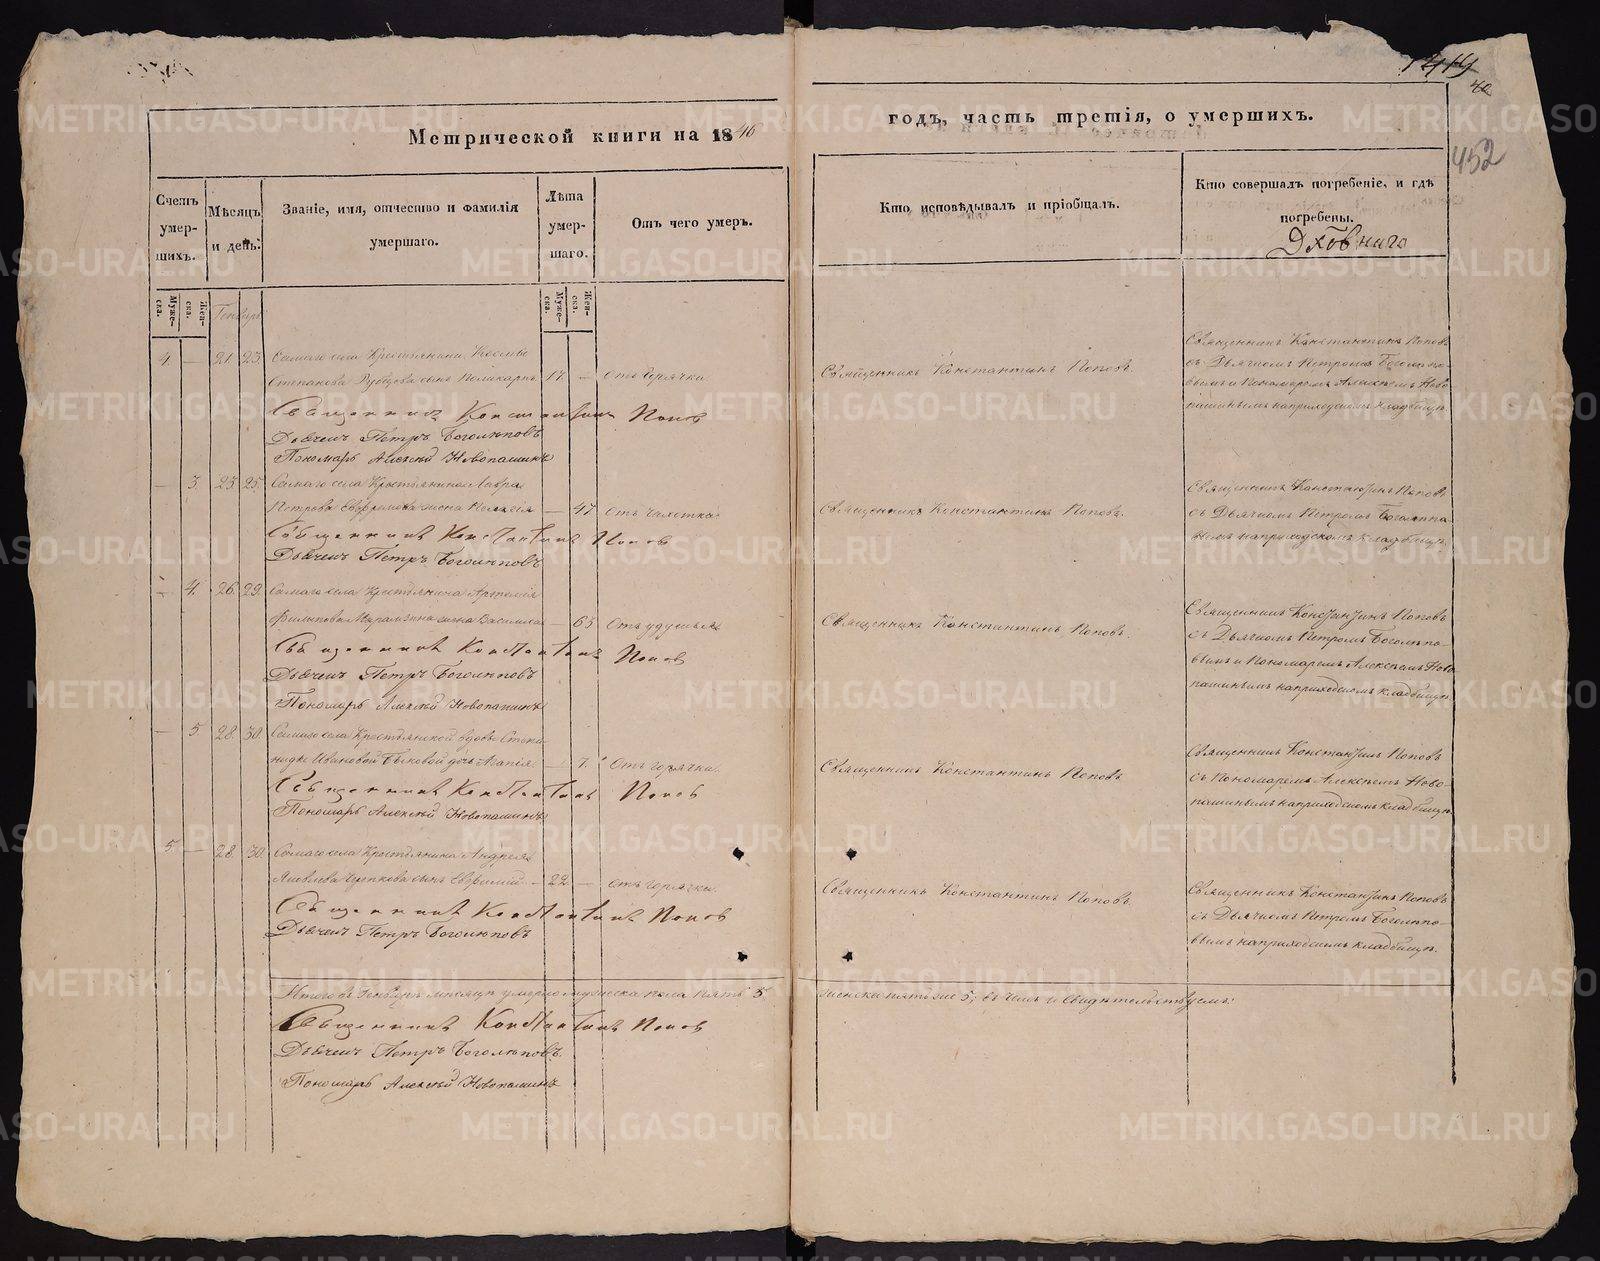 1419
40
452
Метрической книги на 1846
годъ, часть третія, о умершихъ.
Счетъ умер-
шихъ.
Мѣсяцъ
и день.
Званіе, имя, отчество и фамилія
умершаго.
Лѣта
умер-
шаго.
Отъ чего умеръ.
Кто исповѣдывалъ и пріобщалъ.
Кто совершалъ погребеніе, и гдѣ
погребены.
Муже-
ска.
Жен-
ска.
Генварь
Муже-
ска.
Жен-
ска.
4. — 21. 23. Самаго села Крестьянина Космы
Степанова Рубцова сынъ Поликарпъ 17. — отъ Горячки.
Священникъ Константинъ Поповъ.
Священникъ Константинъ Поповъ
съ Дьячкомъ Петромъ Боголѣпо-
вымъ и Пономаремъ Алексѣемъ Ново
пашинымъ на приходскомъ кладбищѣ.
Священникъ Константинъ Попов
Дьячекъ Петръ Боголѣповъ
Пономарь Алексѣй Новопашинъ
— 3. 23. 25. Самаго села Крестьянина Лавра
Петрова жена Пелагія — 47 отъ чахотки.
Священникъ Константинъ Поповъ.
Священникъ Константинъ Поповъ
съ Дьячкомъ Петромъ Боголѣпо-
вымъ на приходскомъ кладбищѣ.
Священникъ Константинъ Попов
Дьячекъ Петръ Боголѣповъ
— 4. 26. 29. Самаго села Крестьянина Артемія
Филипова жена Василиса — 63 отъ удушья.
Священникъ Константинъ Поповъ.
Священникъ Константинъ Поповъ
съ Дьячкомъ Петромъ Боголѣпо-
вымъ и Пономаремъ Алексѣемъ Ново
пашинымъ на приходскомъ кладбищѣ.
Священникъ Константинъ Попов
Дьячекъ Петръ Боголѣповъ
Пономарь Алексѣй Новопашинъ
— 5. 28. 30. Самаго села Крестьянской вдовы Степа-
ниды Ивановой Быковой дочь Агапія — 7. отъ горячки.
Священникъ Константинъ Поповъ
Священникъ Константинъ Поповъ
съ Пономаремъ Алексѣемъ Ново-
пашинымъ на приходскомъ кладбищѣ.
Священникъ Константинъ Попов
Пономарь Алексѣй Новопашинъ
5. — 28. 30. Самаго села Крестьянина Андрея
Яковлева Черепкова сынъ Евфимій — 22. — отъ горячки.
Священникъ Константинъ Поповъ
Священникъ Константинъ Поповъ
съ Дьячкомъ Петромъ Боголѣпо-
вымъ на приходскомъ кладбищѣ.
Священникъ Константинъ Попов
Дьячекъ Петръ Боголѣповъ
Итого въ Генварѣ мѣсяцѣ умерло мужеска пола пять 5 женска пять же 5; въ чемъ и свидѣтельствуемъ:
Священникъ Константинъ Попов
Дьячекъ Петръ Боголѣповъ
Пономарь Алексѣй Новопашинъ
METRIKI.GASO-URAL.RU